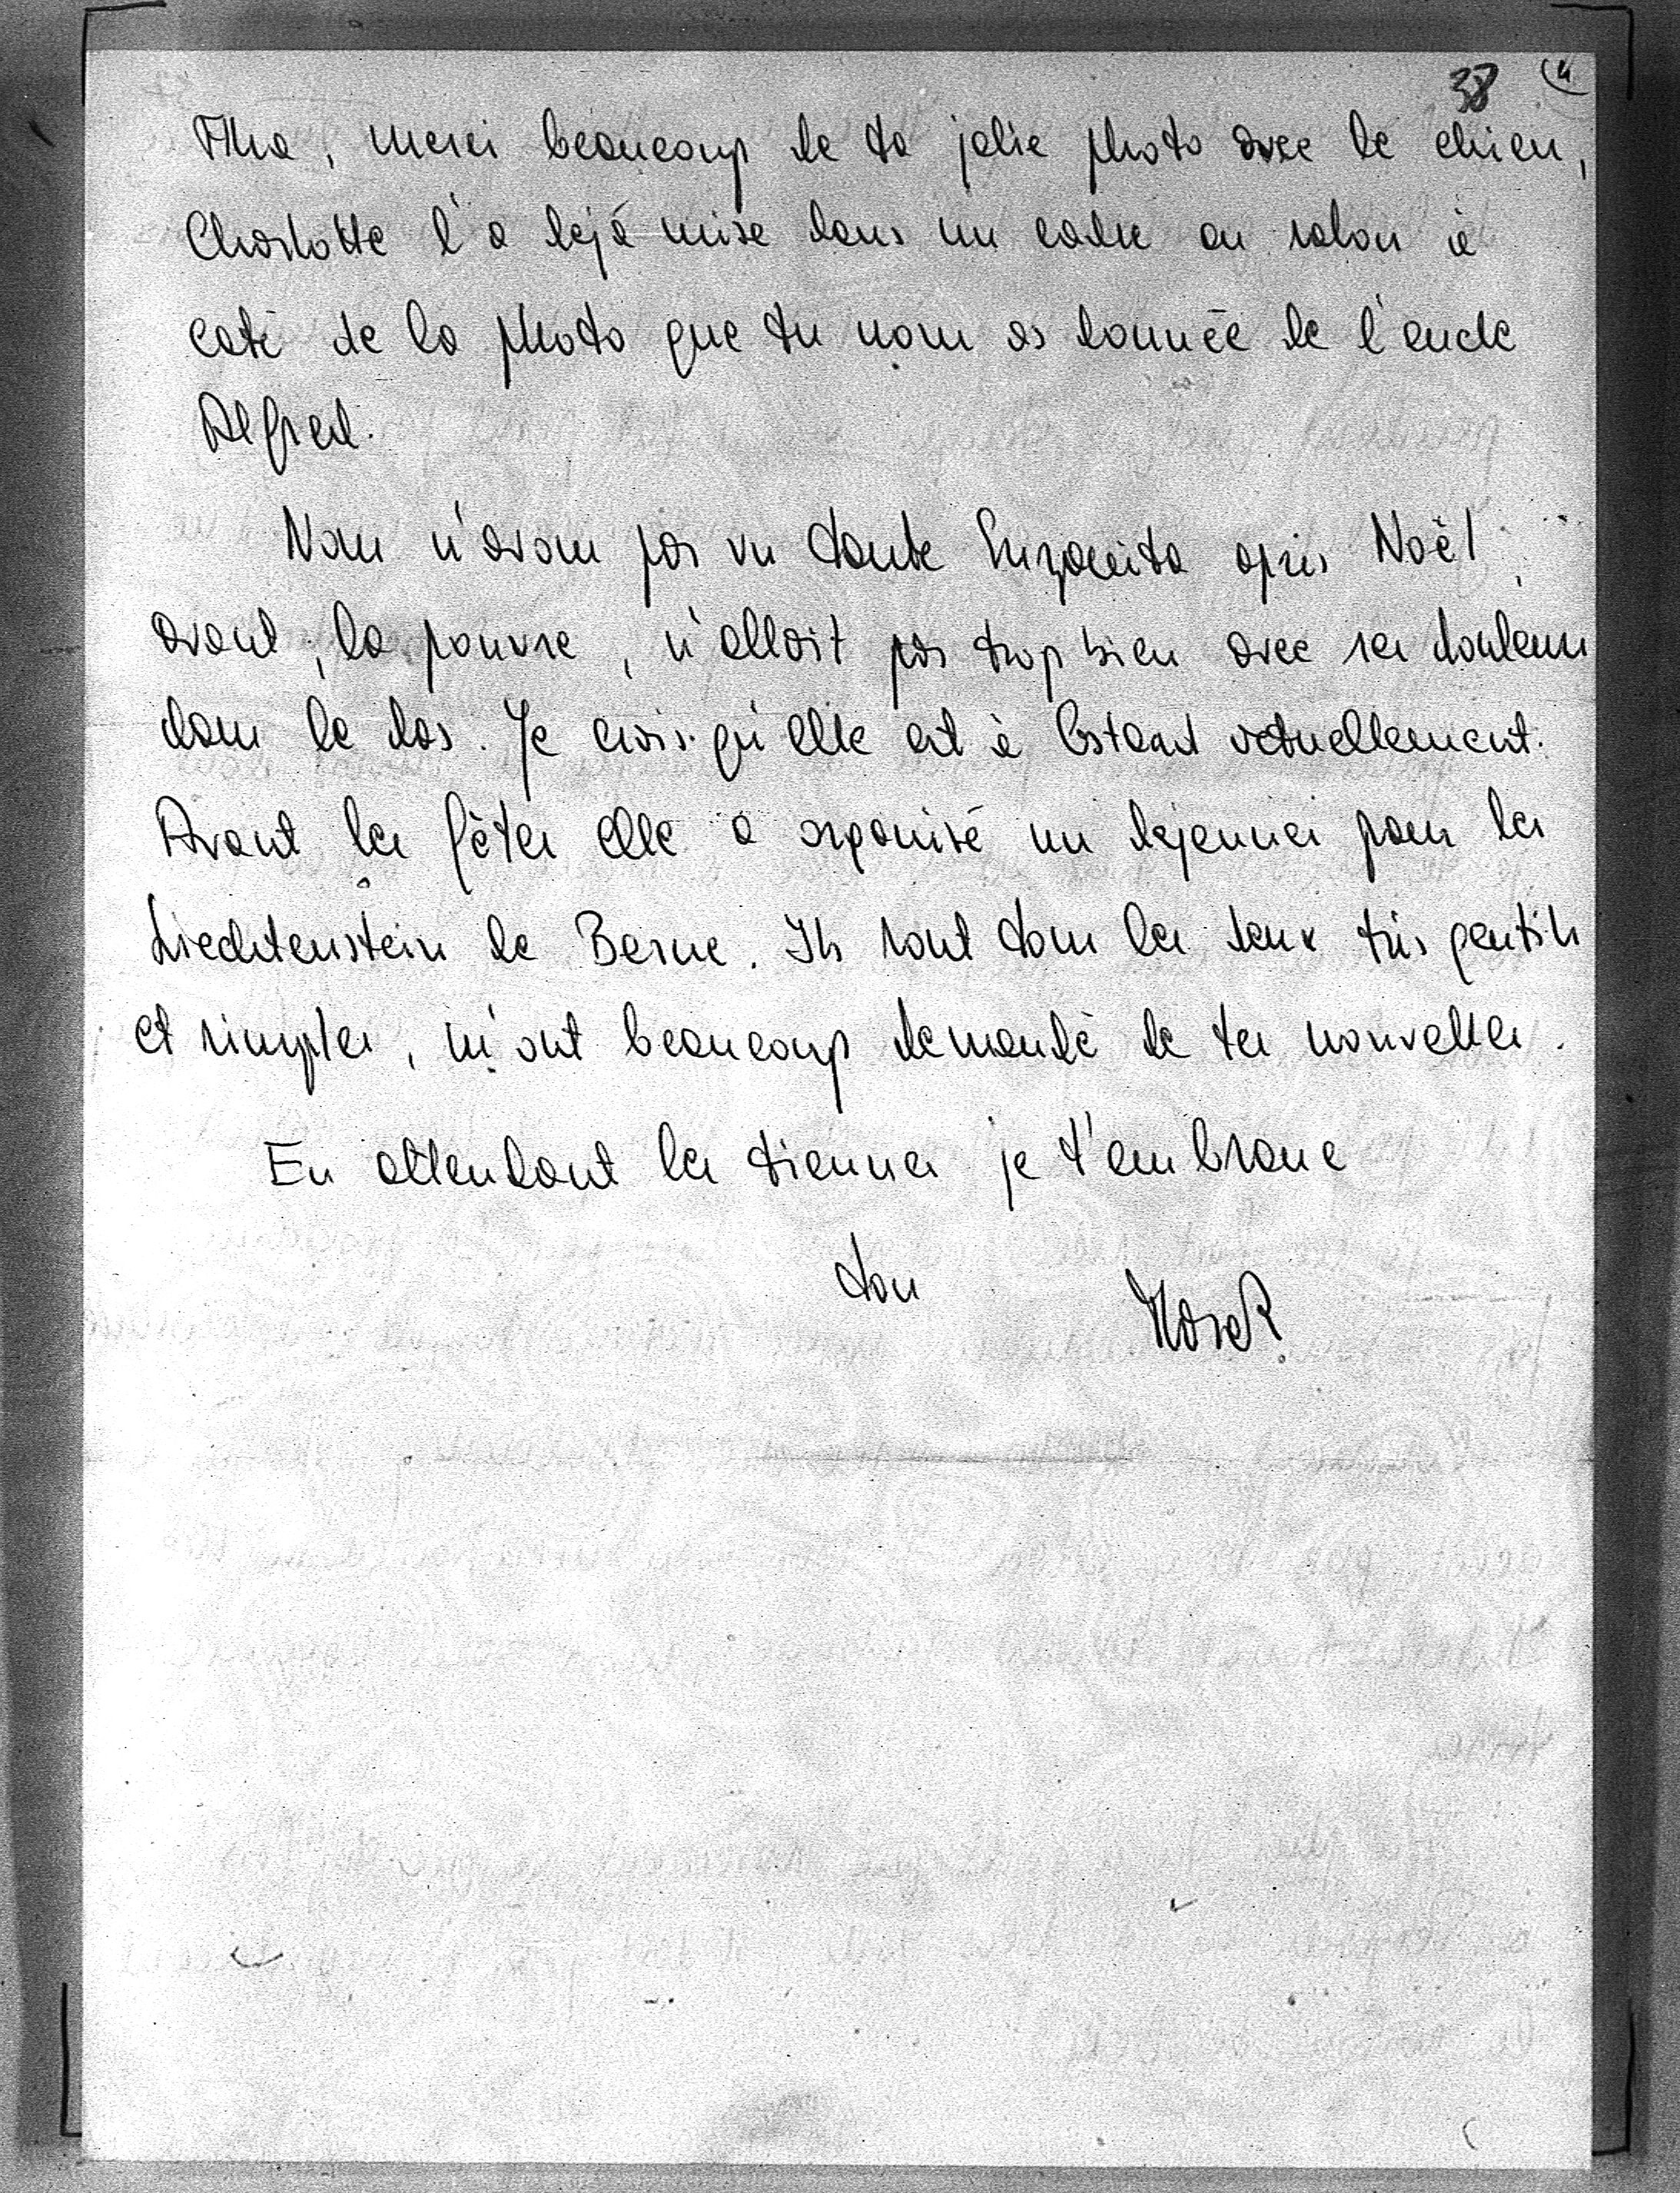 38 (4
Aha, merci beaucoup de ta jolie photo avec le chien,
Charlotte l'a dejá mise dans un cadre au salon à
coté de la photo que tu nous as donnée de l'oncle
Alfred.
Nous n'avons pas vu tante après Noël,
avant, la pauvre, n'allait pas trop bien avec ses douleurs
dans le dos. Je crois qu'elle est à actuellement.
Avant les fêtes elle a organisé un dejeuner pour les
Liechtenstein de Berne. Ils sont tous les deux très gentils
et simples, m'ont beaucoup demandé de tes nouvelles.
En attendant les tiennes je t'embrasse
ton